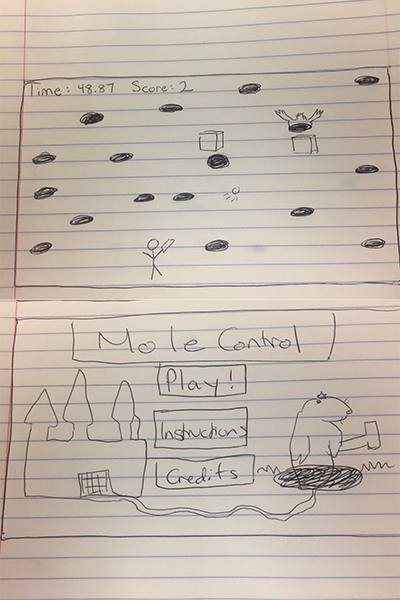 Time: 48.87 Score: 2
Mole Control
Play!
Instructions
Credits